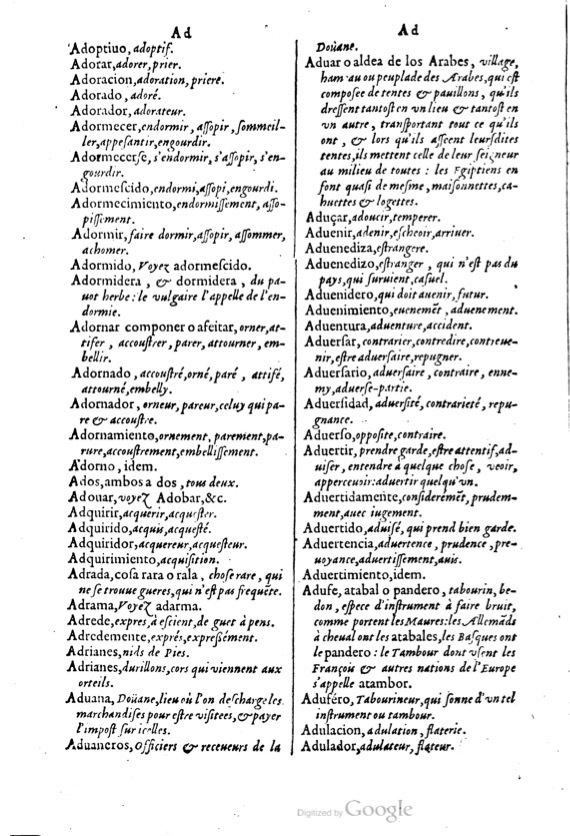 Ad
Adoptiuo, adoptif.
Adorar, adorer, prier.
Adoracion, adoration, priere.
Adorado, adoré.
Adorador, adorateur.
Adormecer, endormir, assopir, sommeil-
ler, appesantir, engourdir.
Adormecerse, s'endormir, s'assopir, s'en-
gourdir.
Adormescido, endormi, assopi, engourdi.
Adormecimiento, endormissement, asso-
pissement.
Adormir, faire dormir, assopir, assommer,
achomer.
Adormido, Voyez adormescido.
Adormidera, & dormidera, du pa-
uot herbe: le vulgaire l'appelle de l'en-
dormie.
Adornar componer o afeitar, orner, at-
tifer, accoustrer, parer, attourner, em-
bellir.
Adornado, accoustré, orné, paré, attifé,
attourné, embelly.
Adornador, orneur, pareur, celuy qui pa-
re & accoustre.
Adornamiento, ornement, parement, pa-
rure, accoustrement, embellissement.
Adorno, idem.
Ados, ambos a dos, tous deux.
Adouar, voyez Adobar, &c.
Adquirir, acquerir, acquester.
Adquirido, acquis, acquesté.
Adquiridor, acquereur, acquesteur.
Adquirimiento, acquisition.
Adrada, cosa rara o rala, chose rare, qui
ne se trouue gueres, qui n'est pas frequēte.
Adrama, Voyez adarma.
Adrede, expres, à escient, de guet à pens.
Adredemente, exprés, expressément.
Adrianes, nids de Pies.
Adrianes, durillons, cors qui viennent aux
orteils.
Aduana, Doüane, lieu où l'on descharge les
marchandises pour estre visitees, & payer
l'impost sur icelles.
Aduaneros, Officiers & receueurs de la
Ad
Doüane.
Aduar o aldea de los Arabes, village,
hameau ou peuplade des Arabes, qui est
composee de tentes & pauillons, qu'ils
dressent tantost en vn lieu & tantost en
vn autre, transportant tout ce qu'ils
ont, & lors qu'ils asseent leursdites
tentes, ils mettent celle de leur seigneur
au milieu de toutes: les Egiptiens en
font quasi de mesme, maisonnettes, ca-
huettes & logettes.
Aduçar, adoucir, temperer.
Aduenir, adenir, escheoir, arriuer.
Aduenediza, estrangere.
Aduenedizo, estranger, qui n'est pas du
pays, qui suruient, casuel.
Aduenidero, qui doit auenir, futur.
Aduenimiento, euenemēt, aduenement.
Aduentura, aduenture, accident.
Aduersar, contrarier, contredire, contreue-
nir, estre aduersaire, repugner.
Aduersario, aduersaire, contraire, enne-
my, aduerse-partie.
Aduersidad, aduersité, contrarieté, repu-
gnance.
Aduerso, opposite, contraire.
Aduertir, prendre garde, estre attentif, ad-
uiser, entendre à quelque chose, veoir,
apperceuoir: aduertir quelqu'vn.
Aduertidamente, considerémēt, prudem-
ment, auec iugement.
Aduertido, aduisé, qui prend bien garde.
Aduertencia, aduertence, prudence, pre-
uoyance, aduertissement, auis.
Aduertimiento, idem.
Adufe, atabal o pandero, tabourin, be-
don, espece d'instrument à faire bruit,
comme portent les Maures: les Allemāds
à cheual ont les atabales, les Basques ont
le pandero: le Tambour dont vsent les
François & autres nations de l'Europe
s'appelle atambor.
Adufero, Tabourineur, qui sonne d'vn tel
instrument ou tambour.
Adulacion, adulation, flaterie.
Adulador, adulateur, flateur.
Digitized by Google